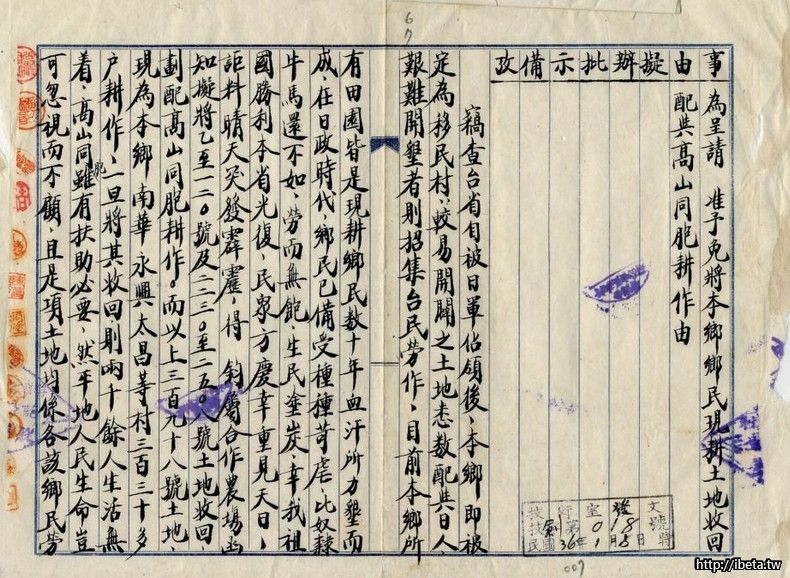 事由擬辦批示備攷
為呈請　准予免將本鄉鄉民現耕土地收回
配與高山同胞耕作由
竊查台省自被日軍佔領後、本鄉即被
定為移民村、較易開闢之土地悉數配與日人、
艱難開墾者則招集台民勞作、目前本鄉所
有田園皆是現耕鄉民數十年血汗所力墾而
成在日政時代、鄉民已備受種種苛虐、比奴隸
牛馬還不如、勞而無飽、生民塗炭、幸我祖
國勝利本省光復、民眾方慶幸重見天日、
詎料晴天突發霹靂、得　鈞屬合作農場函
知擬將乙至一二〇號及二二三〇至二五〇八號土地收回、
劃配高山同胞耕作。而以上三百九十八號土地、
現為本鄉南華永興太昌等村三百三十多
戶耕作、一旦將其收回則兩千餘人生活無
着、高山同胞雖有扶助必要、然平地人民生命豈
可忽視而不顧、且是項土地均係各該鄉民勞
文號
發18
室01
36年1月8日
67
007
http://ibeta.tw